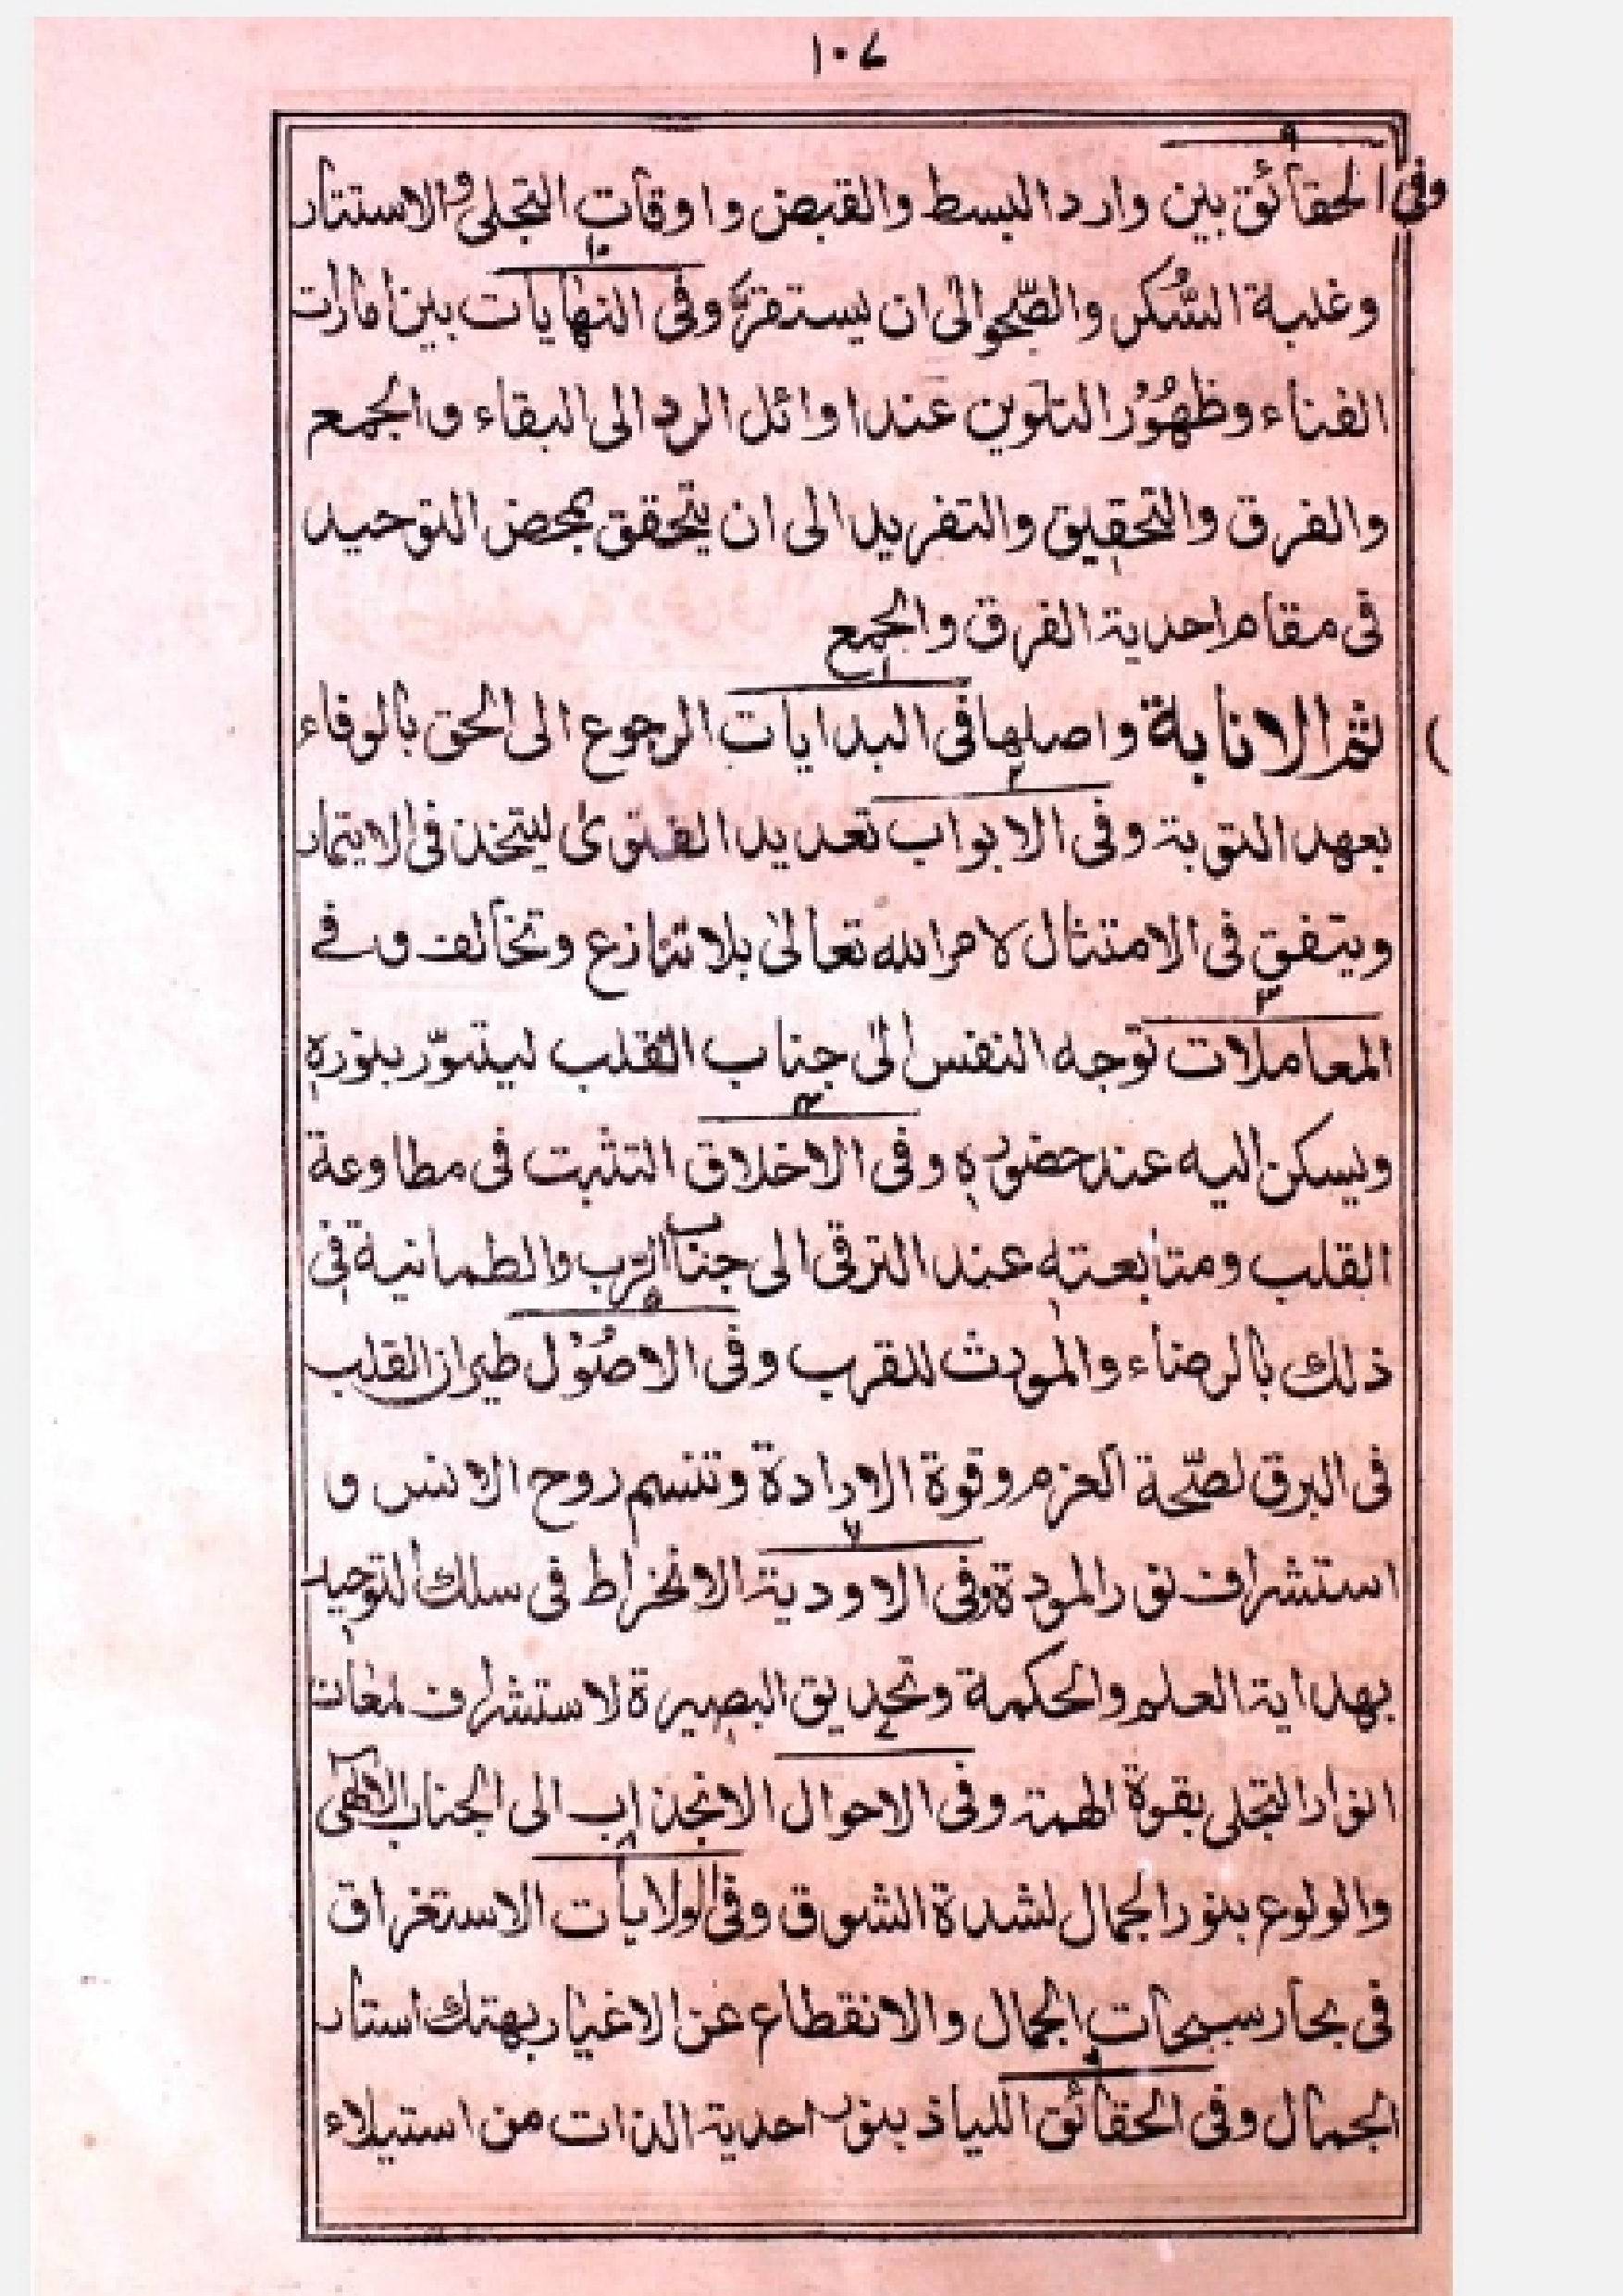 ١٠٧
٩
وفى الحقائق بين وارد البسط والقبض واوقات التجلى والاستتار
١٠
وغلبة السُّكر والصّحو الى ان يستقرّ وفى النهايات بين امارات
الفناء وظهُوُر التلوين عند اوائل الرد الى البقاء والجمع
والفرق والتحقيق والتفريد الى ان يتحقق بمحض التوحيد
فى مقام احدية الفرق والجمع
١
ثم الانابة واصلها فى البدايات الرجوع الى الحق بالوفاء
٢
بعهد التوبة وفى الابواب تعديد الفتوىٰ ليتخذ فى الايتمار
ويتفق فى الامتثال لامر الله تعالىٰ بلا تنازع وتخالف وفے
٣
المعاملات توجه النفس الىٰ جناب القلب ليتنوّر بنوره
۴
ويسكن اليه عند حضوره وفى الاخلاق التثبت فى مطاوعة
القلب ومتابعته عند الترقى الى جناب الرّب والطمانية فى
٥
ذلك بالرضاء والمورث للقرب وفى الاصُوُل طيران القلب
فى البرق لصّحة العزم وقوة الارادة وتنسم روح الانس و
٧
استشراف نور المودة وفى الاودية الانخراط فى سلك التوحيد
بهداية العلم والحكمة وتحديق البصيرة لاستشراف لمعات
انوار التجلى بقوة الهمة وفى الاحوال الانجذاب الى الجناب الالٰهى
٨
والولوع بنور الجمال لشدة الشوق وفى الولايات الاستغراق
فى بحار سبحات الجمال والانقطاع عن الاغيار بهتك استار
٩
الجمال وفى الحقائق اللياذ بنور احدية الذات من استيلاء